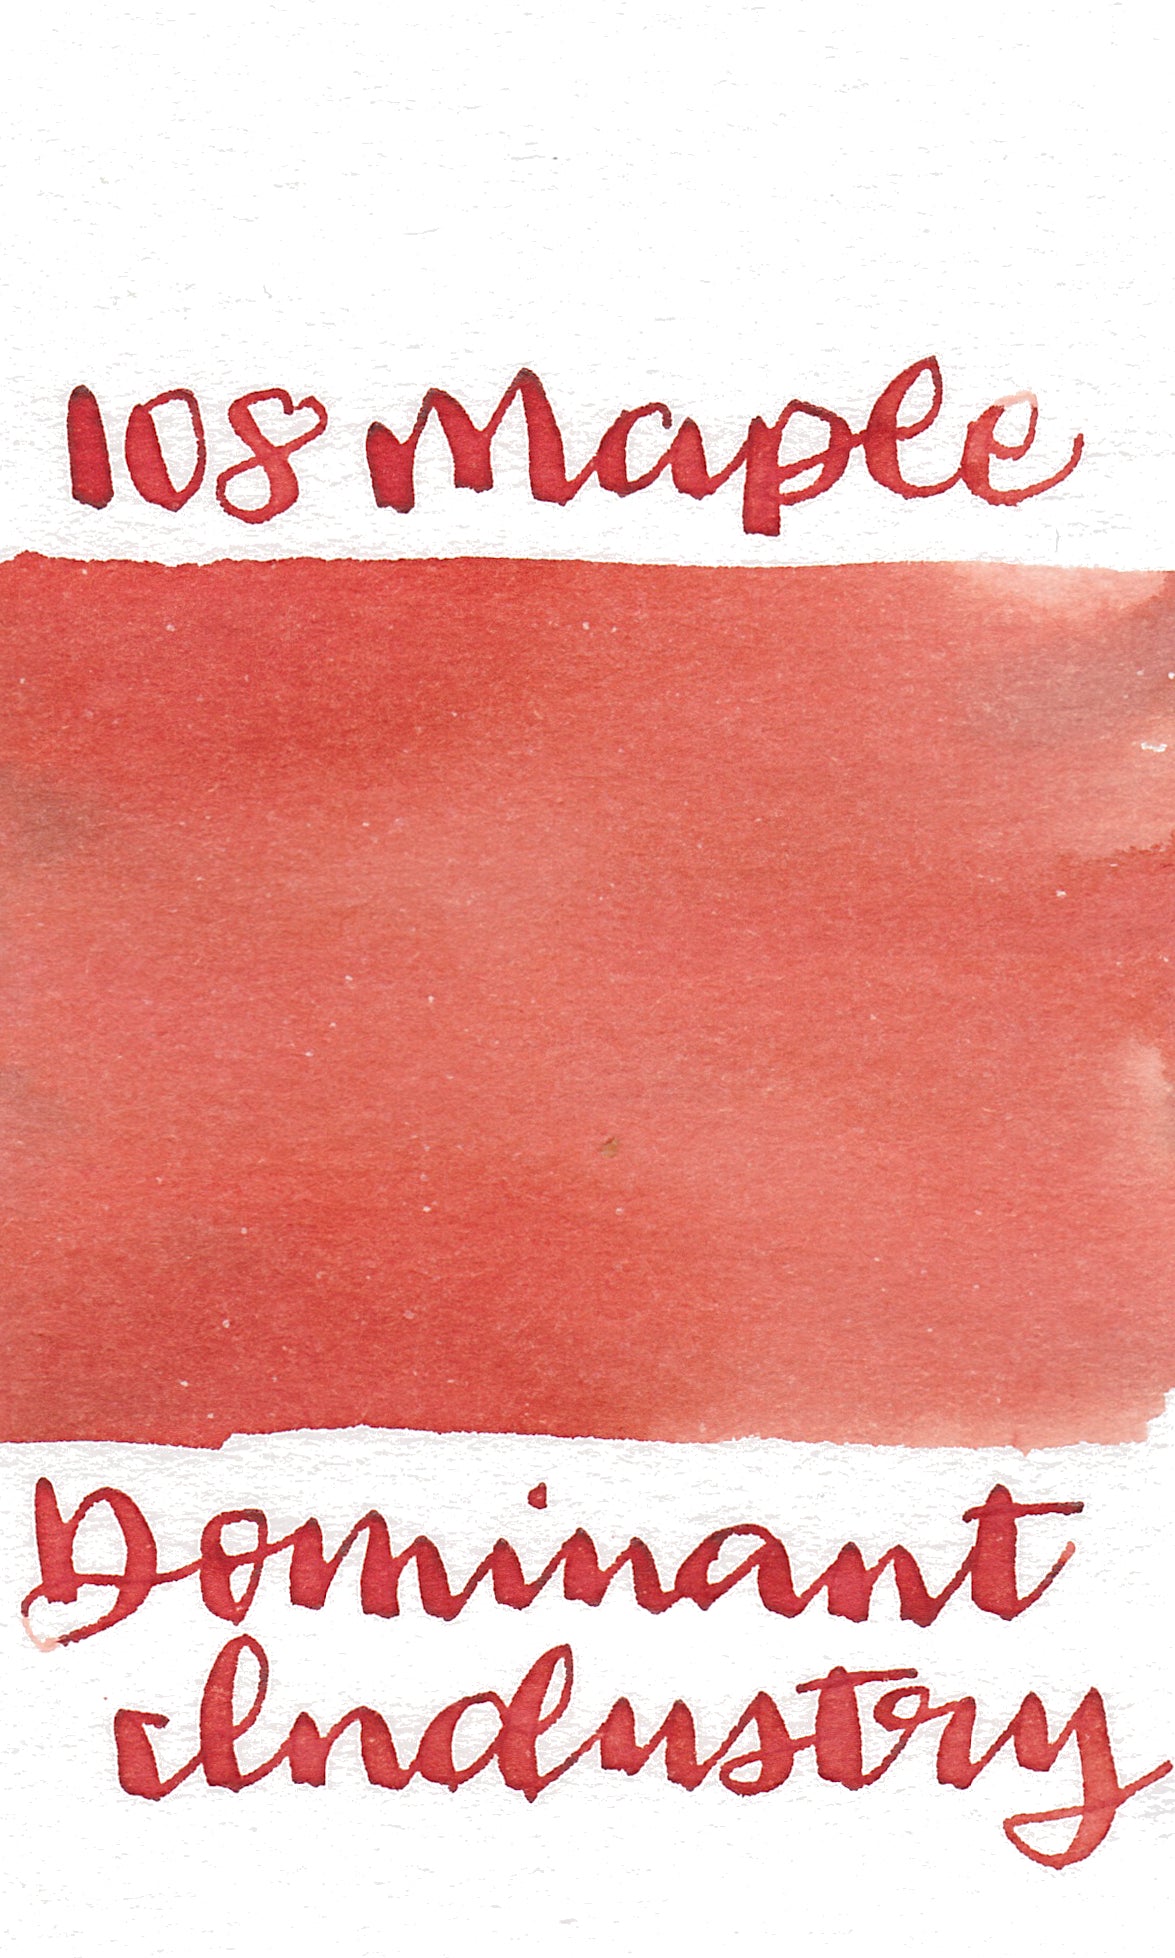 108 Maple
Dominant
Industry